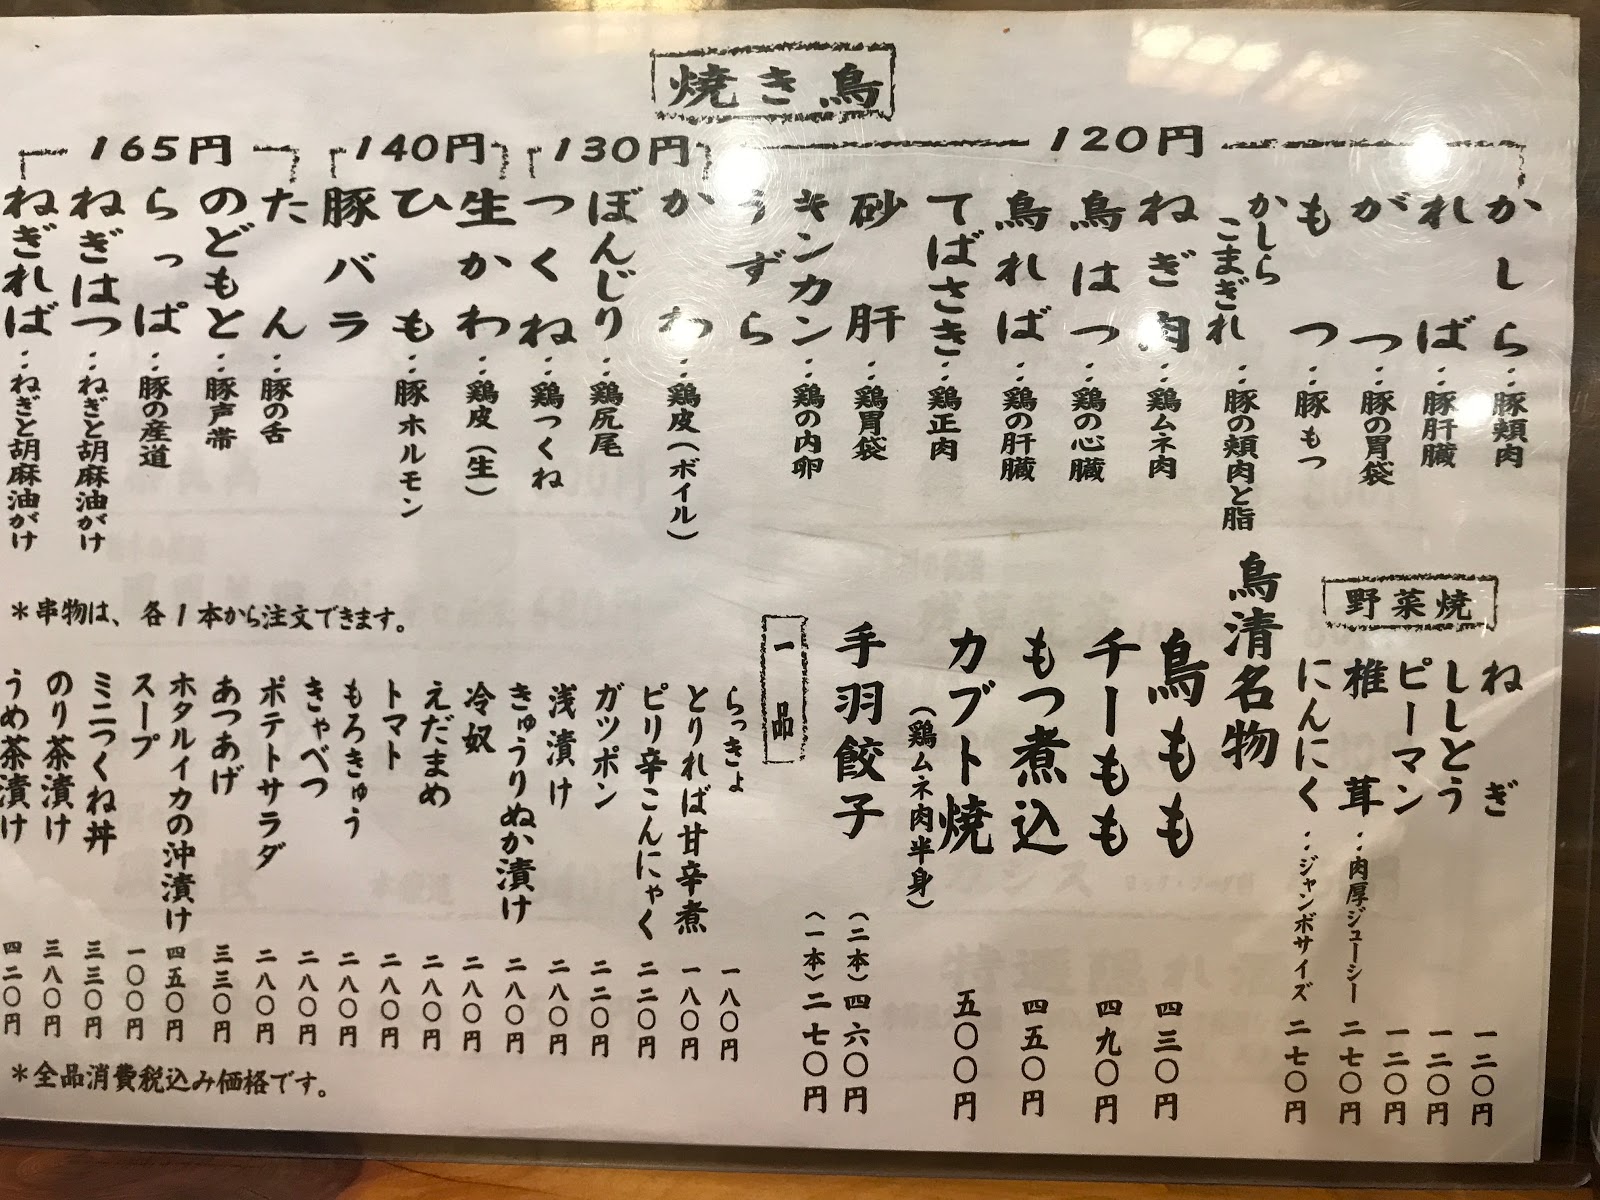 焼き鳥
120円
かしら‥豚頬肉
れば‥豚肝臓
がつ‥豚の胃袋
もつ‥豚もつ
かしらこまぎれ‥豚の頬肉と脂
ねぎ肉‥鶏ムネ肉
鳥はつ‥鶏の心臓
鳥れば‥鶏の肝臓
てばさき‥鶏正肉
砂肝‥鶏胃袋
キンカン‥鶏の内卵
うずら
130円
かわ‥鶏皮(ボイル)
ぼんじり‥鶏尻尾
つくね‥鶏つくね
140円
生かわ‥鶏皮(生)
ひも‥豚ホルモン
豚バラ
165円
たん‥豚の舌
のどもと‥豚声帯
らっぱ‥豚の産道
ねぎはつ‥ねぎと胡麻油がけ
ねぎれば‥ねぎと胡麻油がけ
*串物は、各1本から注文できます。
野菜焼
ねぎ 一二〇円
ししとう 一二〇円
ピーマン 一二〇円
椎茸‥肉厚ジューシー 二七〇円
にんにく‥ジャンボサイズ 二七〇円
鳥清名物
鳥もも 四三〇円
チーもも 四九〇円
もつ煮込 四五〇円
カブト焼 五〇〇円
(鶏ムネ肉半身)
手羽餃子 (二本)四六〇円
(一本)二七〇円
一品
らっきょ 一八〇円
とりれば甘辛煮 一八〇円
ピリ辛こんにゃく 二二〇円
ガツポン 二二〇円
浅漬け 二八〇円
きゅうりぬか漬け 二八〇円
冷奴 二八〇円
えだまめ 二八〇円
トマト 二八〇円
もろきゅう 二八〇円
きゃべつ 二八〇円
ポテトサラダ 二八〇円
あつあげ 三三〇円
ホタルイカの沖漬け 四五〇円
スープ 一〇〇円
ミニつくね丼 三三〇円
のり茶漬け 三八〇円
うめ茶漬け 四二〇円
*全品消費税込み価格です。